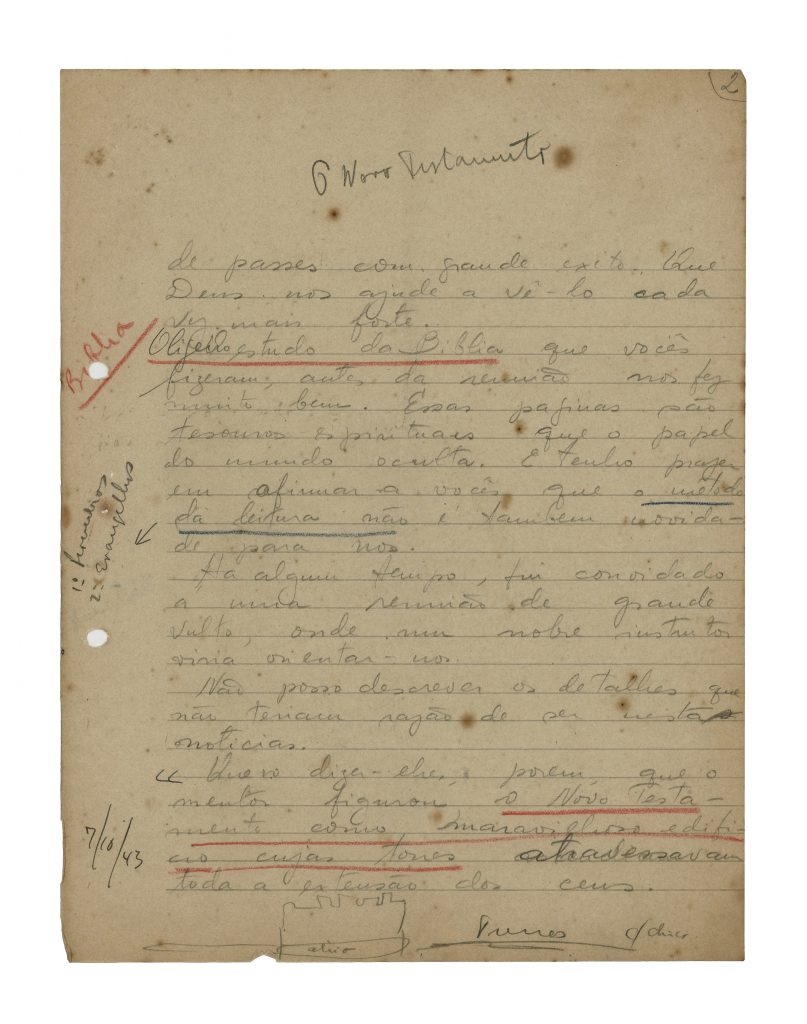 2
O Novo Testamento
de passes com grande exito. Que
Deus nos ajude a vê-lo cada
vez mais forte.
O ligeiro estudo da Biblia que vocês
fizeram, antes da reunião nos fez
muito bem. Essas paginas são
tesouros espirituais que o papel
do mundo oculta. E tenho prazer
em afirmar a vocês que o método
da leitura não é tambem novida-
de para nos.
Há algum tempo, fui convidado
a uma reunião de grande
vulto, onde um nobre instrutor
viria orientar-nos.
Não posso descrever os detalhes que
não teriam razão de ser nesta
noticias.
Quero dizer-lhes, porem, que o
mentor figurou o Novo Testa-
mento como maravilhoso edifi-
cio cujas torres atravessavam
toda a extensão dos ceus.
Biblia
2º Evangelhos
7/10/43
atrio